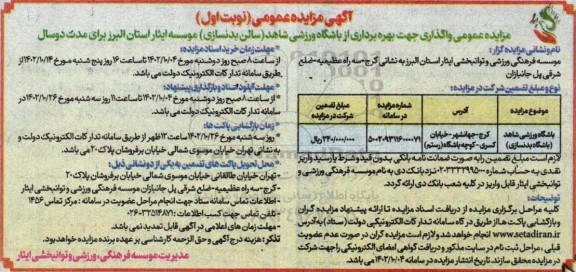 آگهی مزایده عمومی (نوبت اول)
مزایده عمومی واگذاری جهت بهره برداری از باشگاه ورزشی شاهد(سالن بدنسازی) موسسه ایثار استان البرز برای مدت دوسال
نام و نشانی مزایده گزار :
موسسه فرهنگی ورزشی و توانبخشی ایثار استان البرز به نشانی کرج-سه راه عظیمیه-ضلع
شرقی پل جانبازان
نوع و مبلغ تضمین شرکت در مزایده:
موضوع مزایده
آدرس
شماره مزایده در سامانه
مبلغ تضمین شرکت در مزایده
باشگاه ورزشی شاهد (باشگاه بدنسازی)
کرج-جهانشهر-خیابان کسری-کوچه باشگاه(رستم)
۲۴۰/۰۰۰/۰۰۰ ریال
لازم است مبلغ تضمین را به صورت ضمانت نامه بانکی بدون قید و شرط یا رسید واریز
نقدی به حساب شماره نزد بانک دی به نام موسسه فرهنگی ورزشی و
توانبخشی ایثار قابل واریز در کلیه شعب بانک دی ارائه گردد.
توضیحات:
کلیه مراحل برگزاری مزایده از دریافت اسناد مزایده تا ارائه پیشنهاد مزایده گران
و بازگشایی پاکت ها از طریق درگاه سامانه تدارکات الکترونیکی دولت (ستاد) به آدرس
www.setadiran.ir انجام خواهد شد و لازم است مزایده گران در صورت عدم عضویت
قبلی ، مراحل ثبت نام در سایت مذکور و دریافت گواهی امضای الکترونیکی را جهت شرکت
در مزایده محقق سازند. تاریخ انتشار مزایده در سامانه ۱۴۰۲/۱۰/۰۴ می باشد.
* مهلت زمان خرید اسناد مزایده:
از ساعت ۸ صبح روز دوشنبه مورخ ۱۴۰۲/۱۰/۰۴ تا ساعت ۱۶ روز پنج شنبه مورخ ۱۴۰۲/۱۰/۱۴ از
طریق سامانه تدارکات الکترونیک دولت می باشد.
* مهلت آپلود اسناد و بارگذاری پیشنهاد:
از ساعت ۸ صبح روز دوشنبه مورخ ۱۴۰۲/۱۰/۰۴ تا ساعت ۱۱ روز سه شنبه مورخ ۱۴۰۲/۱۰/۲۶ در
سامانه تدارکات الکترونیک دولت می باشد.
* زمان بازگشایی پاکت ها:
- روز سه شنبه مورخ ۱۴۰۲/۱۰/۲۶ ساعت ۱۲ ظهر از طریق سامانه تدارکات الکترونیک دولت و
به نشانی تهران خیابان موسوی شمالی خیابان برفروشان پلاک ۲۰ می باشد.
* محل تحویل پاکت های تضمین به یکی از دو نشانی ذیل:
- تهران خیابان طالقانی خیابان موسوی شمالی خیابان برفروشان پلاک ۲۰
-کرج-سه راه عظیمیه-ضلع شرقی پل جانبازان موسسه فرهنگی ورزشی و توانبخشی ایثار
- اطلاعات تماس سامانه ستاد جهت انجام مراحل عضویت در سامانه : مرکز تماس ۱۴۵۶
- تلفن تماس جهت کسب اطلاعات : ۳۲۵۱۴۸۷۱-۰۲۶
- مهلت زمان های اعلامی در آگهی قابل تمدید نمی باشد.
تذکر: هزینه درج آگهی و حق الزحمه کارشناسی بر عهده برنده مزایده خواهد بود.
مدیریت موسسه فرهنگی، ورزشی و توانبخشی ایثار